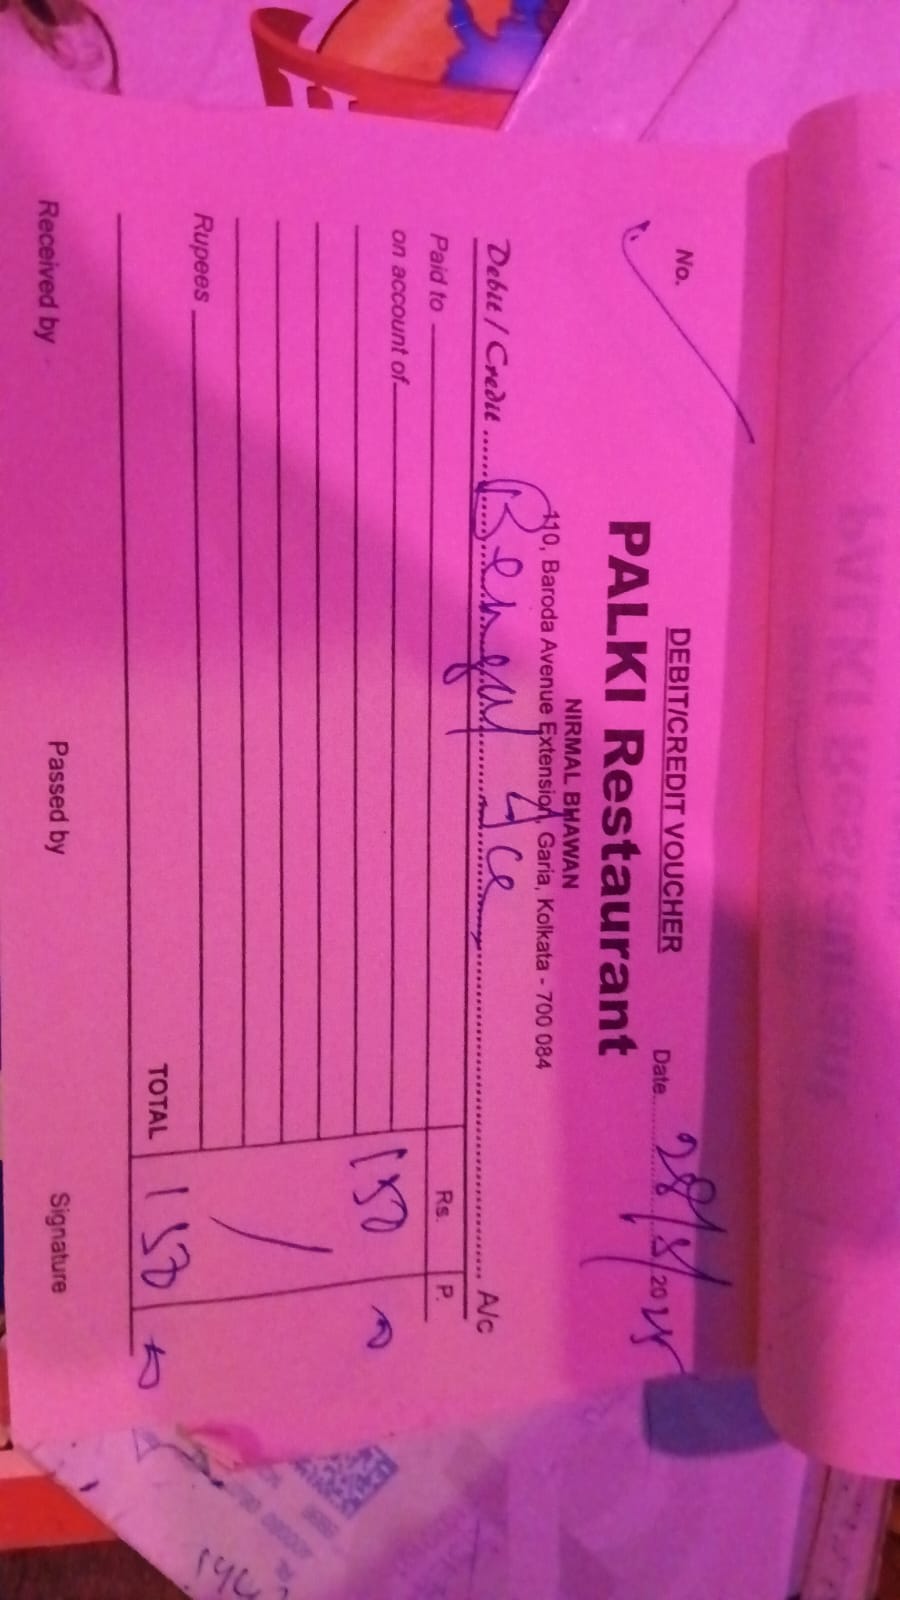 DEBIT/CREDIT VOUCHER
No.
Date 28/8/2025
PALKI Restaurant
NIRMAL BHAWAN
110, Baroda Avenue Extension, Garia, Kolkata - 700 084
Debit / Credit ...... Bengal Ace ...... A/c
Paid to
Rs. P.
on account of
150 0
Rupees
TOTAL 150 0
Received by Passed by Signature